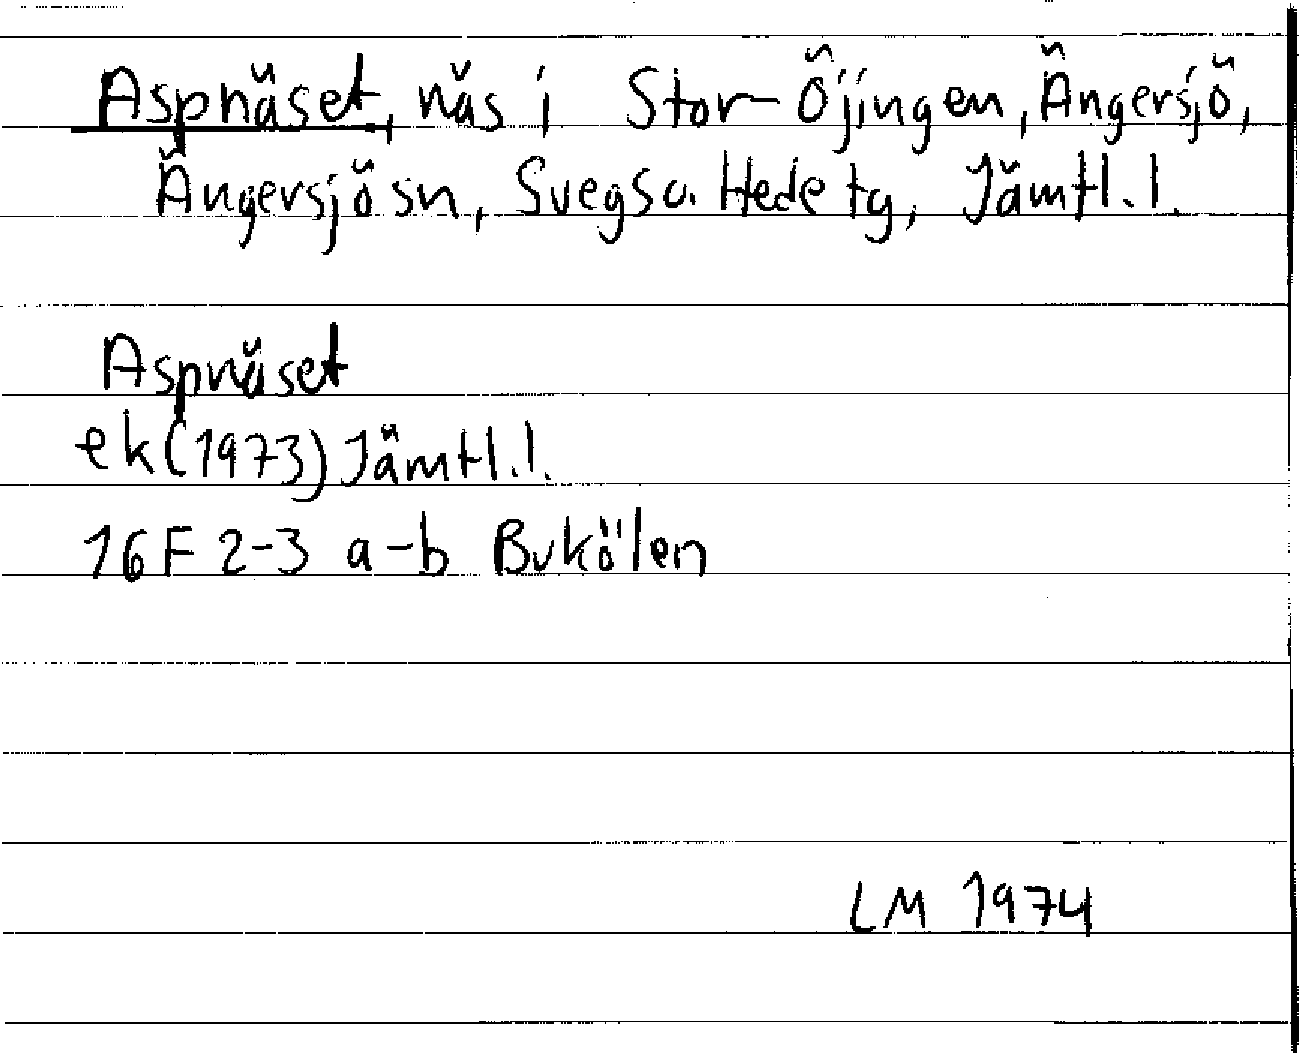 Aspnäset, näs i Stor-Öjingen, Ängersjö,
Ängersjö sn, Svegs o. Hede tg, Jämtl. l.
Aspnäset
ek (1973) Jämtl. l.
16F 2-3 a-b Bukölen
LM 1974